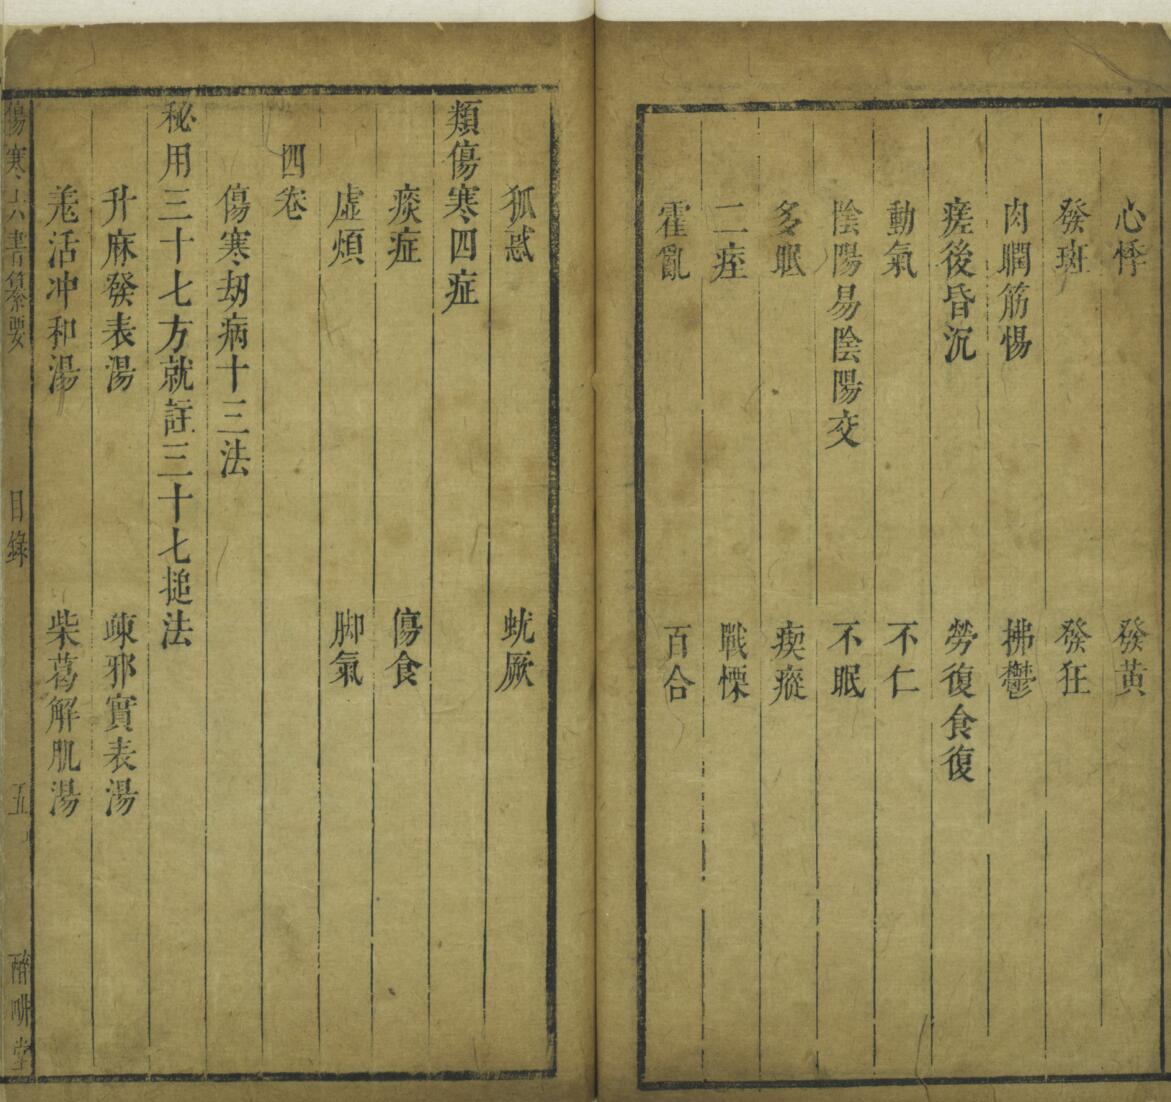 心悸　發黃
發斑　發狂
肉瞤筋惕　拂鬱
瘥後昏沉　勞復食復
動氣　不仁
陰陽易陰陽交　不眠
多眠　瘈瘲
二痓　戰慄
霍亂　百合
狐惑　蚘厥
類傷寒四症
痰症　傷食
虛煩　脚氣
四卷
傷寒刼病十三法
秘用三十七方就註三十七搥法
升麻發表湯　疎邪實表湯
羗活冲和湯　柴葛解肌湯
傷寒六書纂要　目錄　五　醉耕堂